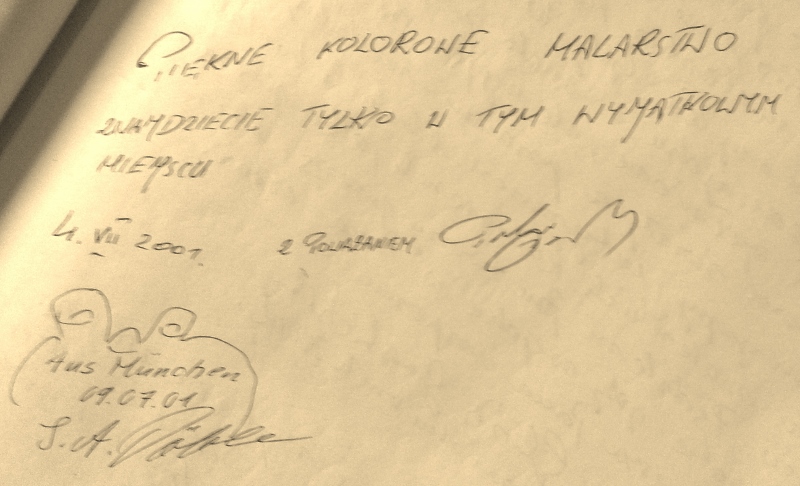 PIĘKNE KOLOROWE MALARSTWO
ZNAJDZIECIE TYLKO W TYM WYJĄTKOWYM
MIEJSCU
4. VII 2001. Z POWAŻANIEM
Aus München
09.07.01
S. A.